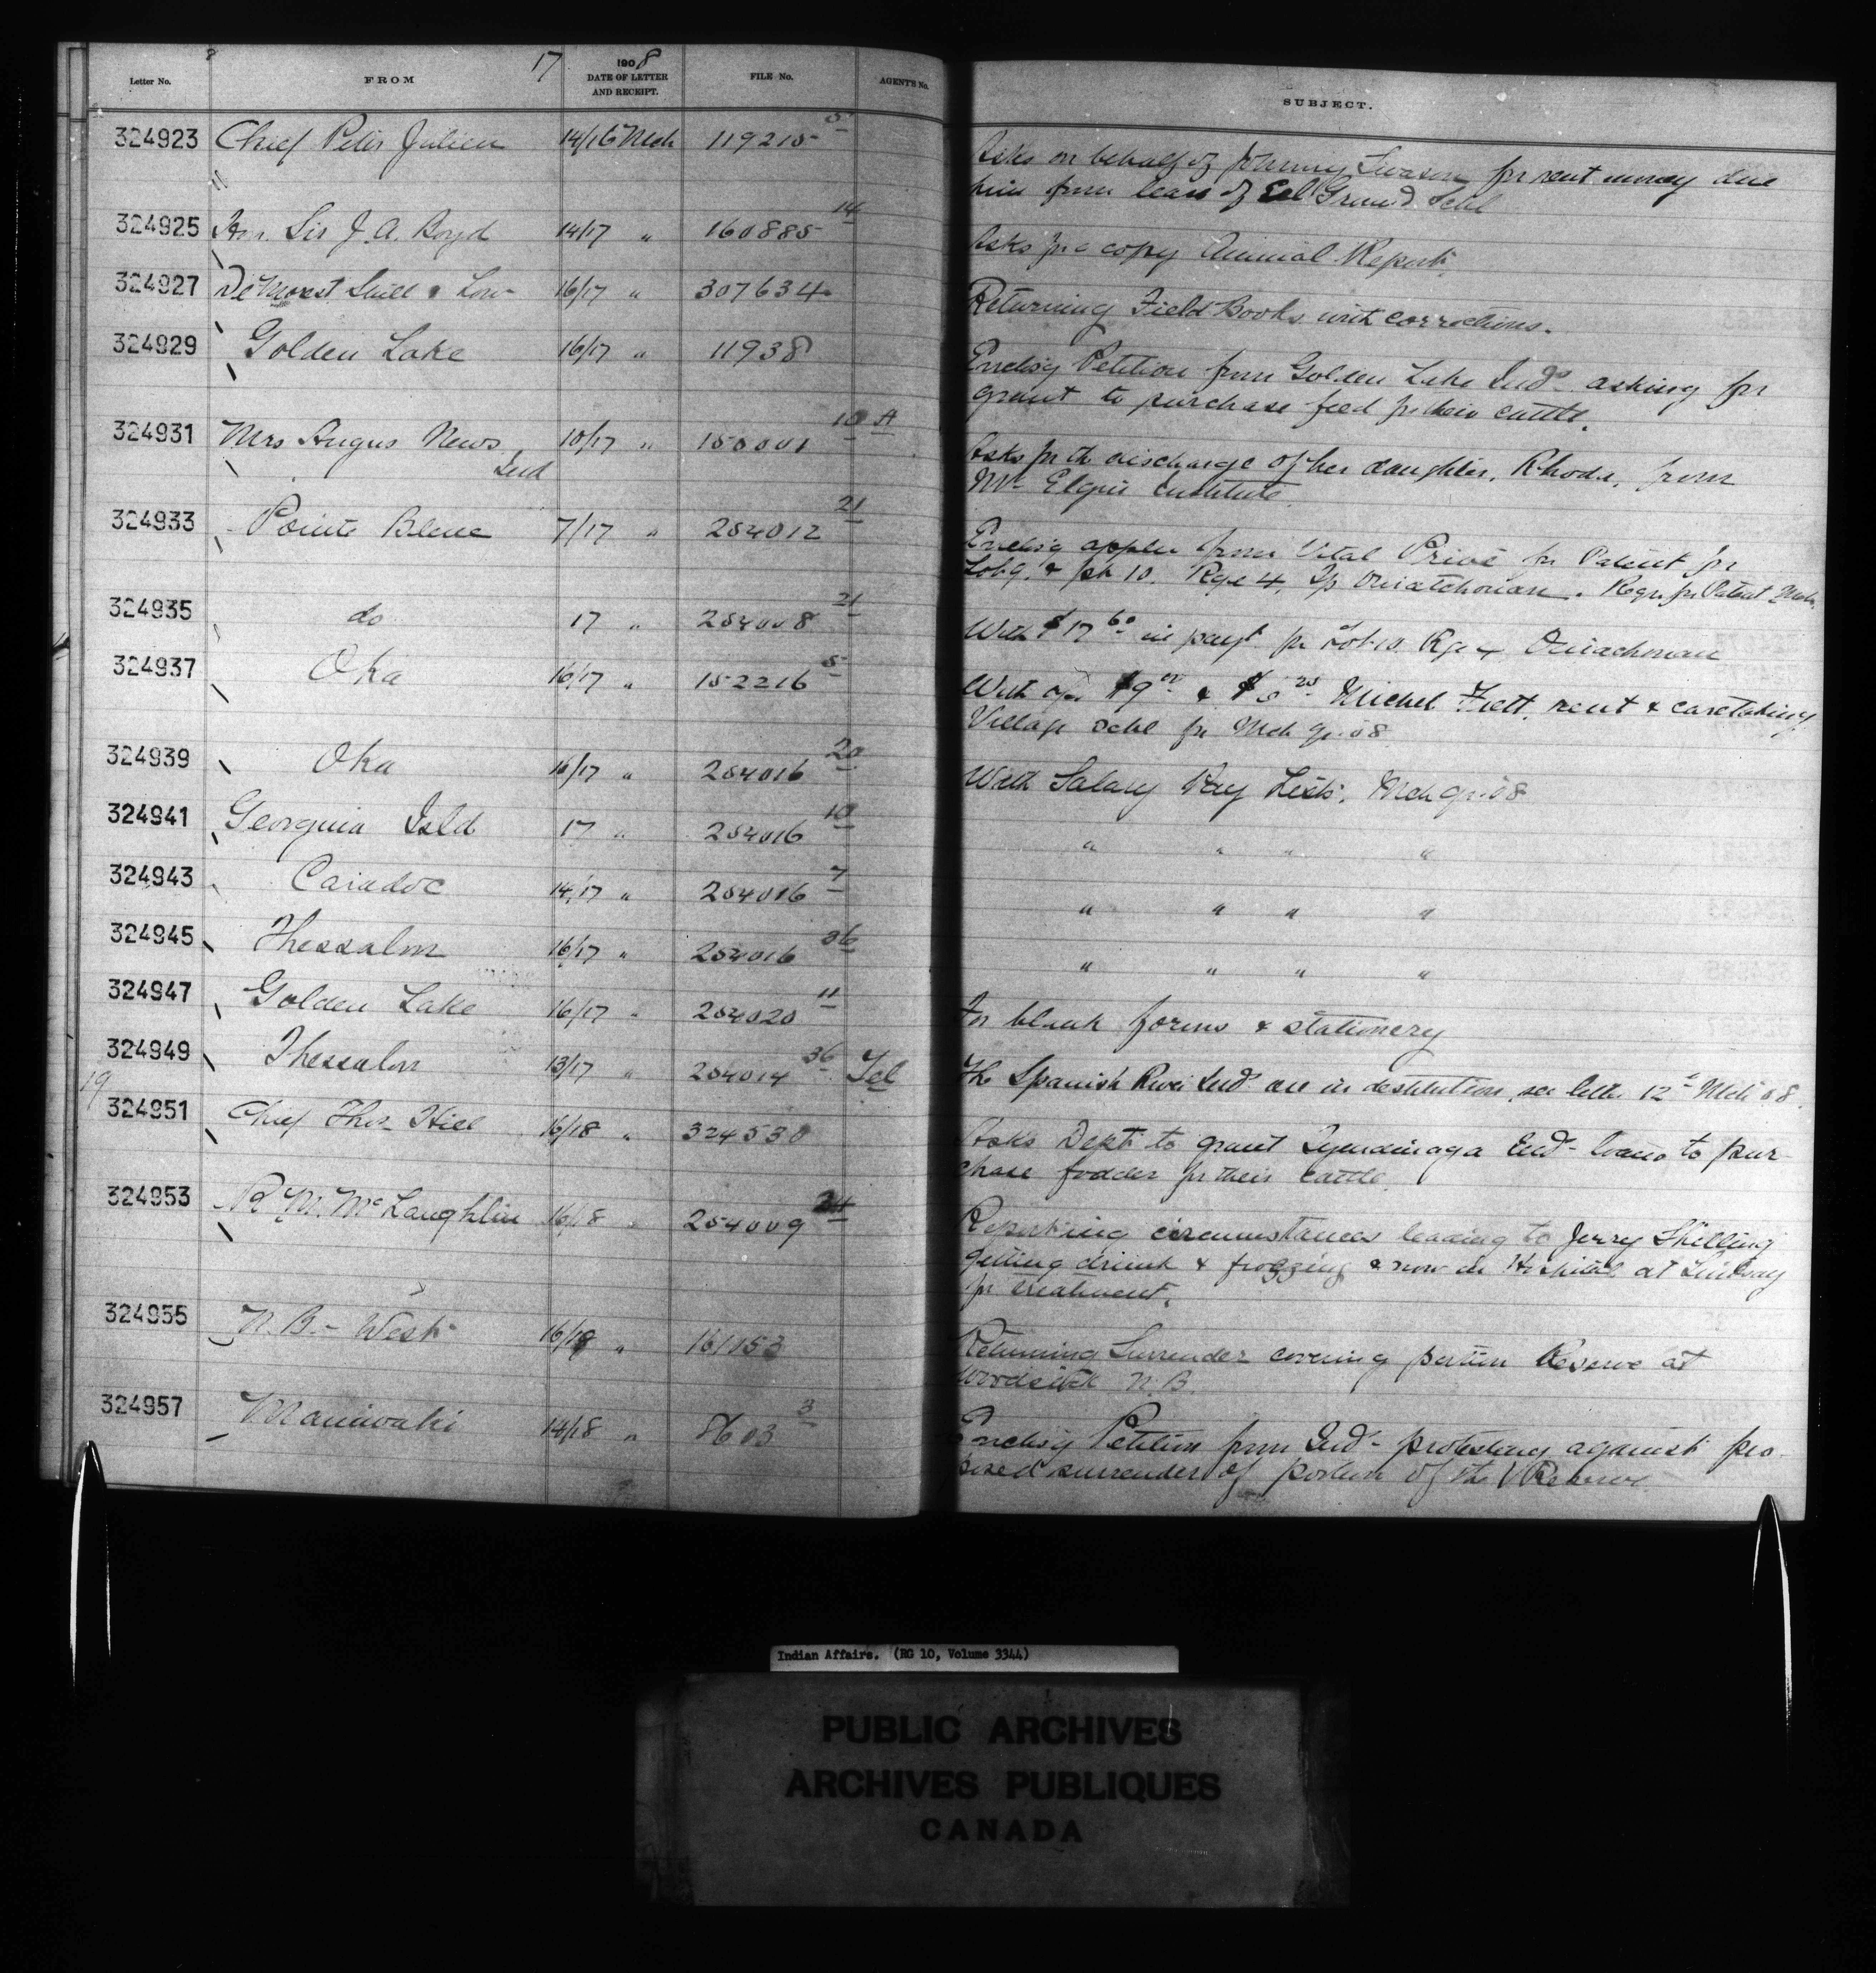 17
Letter No. FROM 1908 DATE OF LETTER AND RECEIPT. FILE No. AGENT'S No. SUBJECT.
324923 Chief Peter Julien 14/16 Mch 119215 5 Asks on behalf of Johnny Swason for rent money due
him from lease of Eel Ground Schl
324925 Hon. Sir J. A. Boyd 14/17 " 160885 14 Asks for a copy Annual Report.
324927 De Morest Stull & Low 16/17 " 307634 Returning Field Books with corrections.
324929 Golden Lake 16/17 " 11938 Enclsg Petition from Golden Lake Inds asking for
grant to purchase feed for their cattle.
324931 Mrs Angus News 10/17 " 150001 10 A Asks for the discharge of her daughter, Rhoda, from
Ind Mt Elgin Institute
324933 Pointe Bleue 7/17 " 254012 21 Enclsg appln from Vital Privé for Patent for
Lot 9. & pt 10. Rge 4, Tp Ouiatchouan. Regr. for Patent Mch.
324935 do 17 " 254008 21 With $17 60 in payt for Lot 10. Rge 4 Ouiachouan
324937 Oka 16/17 " 152216 5 With $9 00 & $6 25 Michel rent & caretaking
Village Schl for Mch qr. 08
324939 Oka 16/17 " 254016 20 With Salary Pay Lists. Mch qr. 08
324941 Georgina Isld 17 " 254016 10 " " " "
324943 Caradoc 14/17 " 254016 7 " " " "
324945 Thessalon 16/17 " 254016 36 " " " "
324947 Golden Lake 16/17 " 254020 11 For blank forms & stationery
324949 Thessalon 13/17 " 254014 36 Tel The Spanish River Inds are in destitution, see letter 12th Mch 08.
19
324951 Chief Thos. Hill 16/18 " 324530 Asks Dept to grant Tyendinaga Inds loans to pur-
chase fodder for their cattle.
324953 R. M. McLaughlin 16/18 " 254009 Reporting circumstances leading to Jerry Shilling
getting drunk & frogzing & now in Hospital at Lindsay
for treatment.
324955 N. B. - West 16/18 " 161153 Returning Surrender covering portion Reserve at
Woodstock N. B.
324957 Maniwaki 14/18 " 8603 3 Enclsg Petition from Inds - protesting against pro-
posed surrender of portion of the Reserve
Indian Affairs. (RG 10, Volume 3344)
PUBLIC ARCHIVES
ARCHIVES PUBLIQUES
CANADA